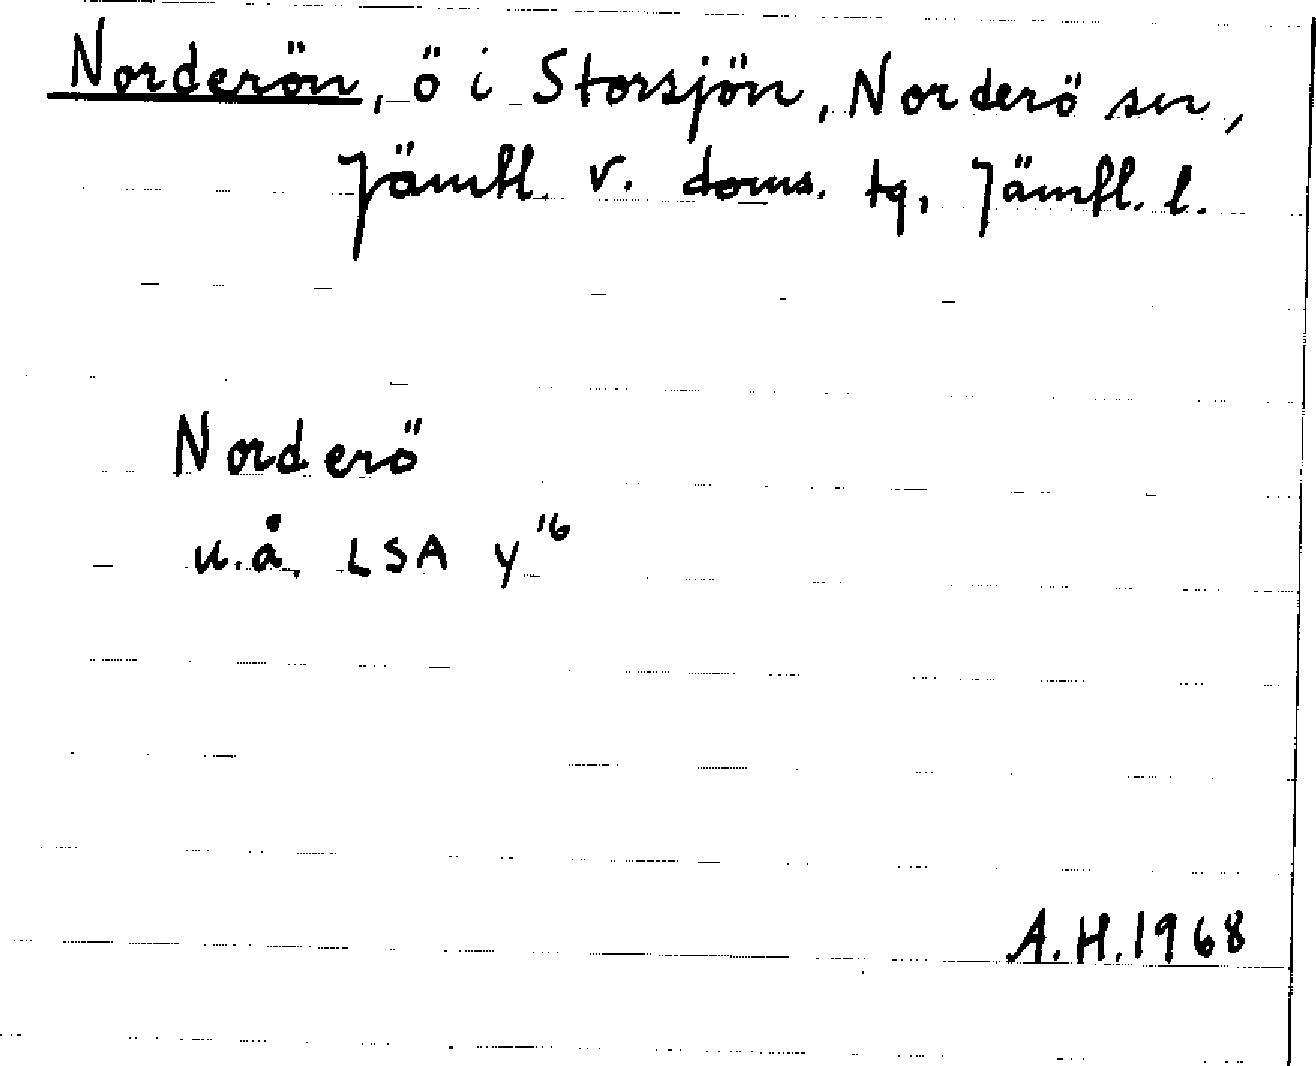 Norderön, ö i Storsjön, Norderö sn,
Jämtl. v. doms. tg, Jämtl. l.
Norderö
u.å. LSA y16
A.H.1968